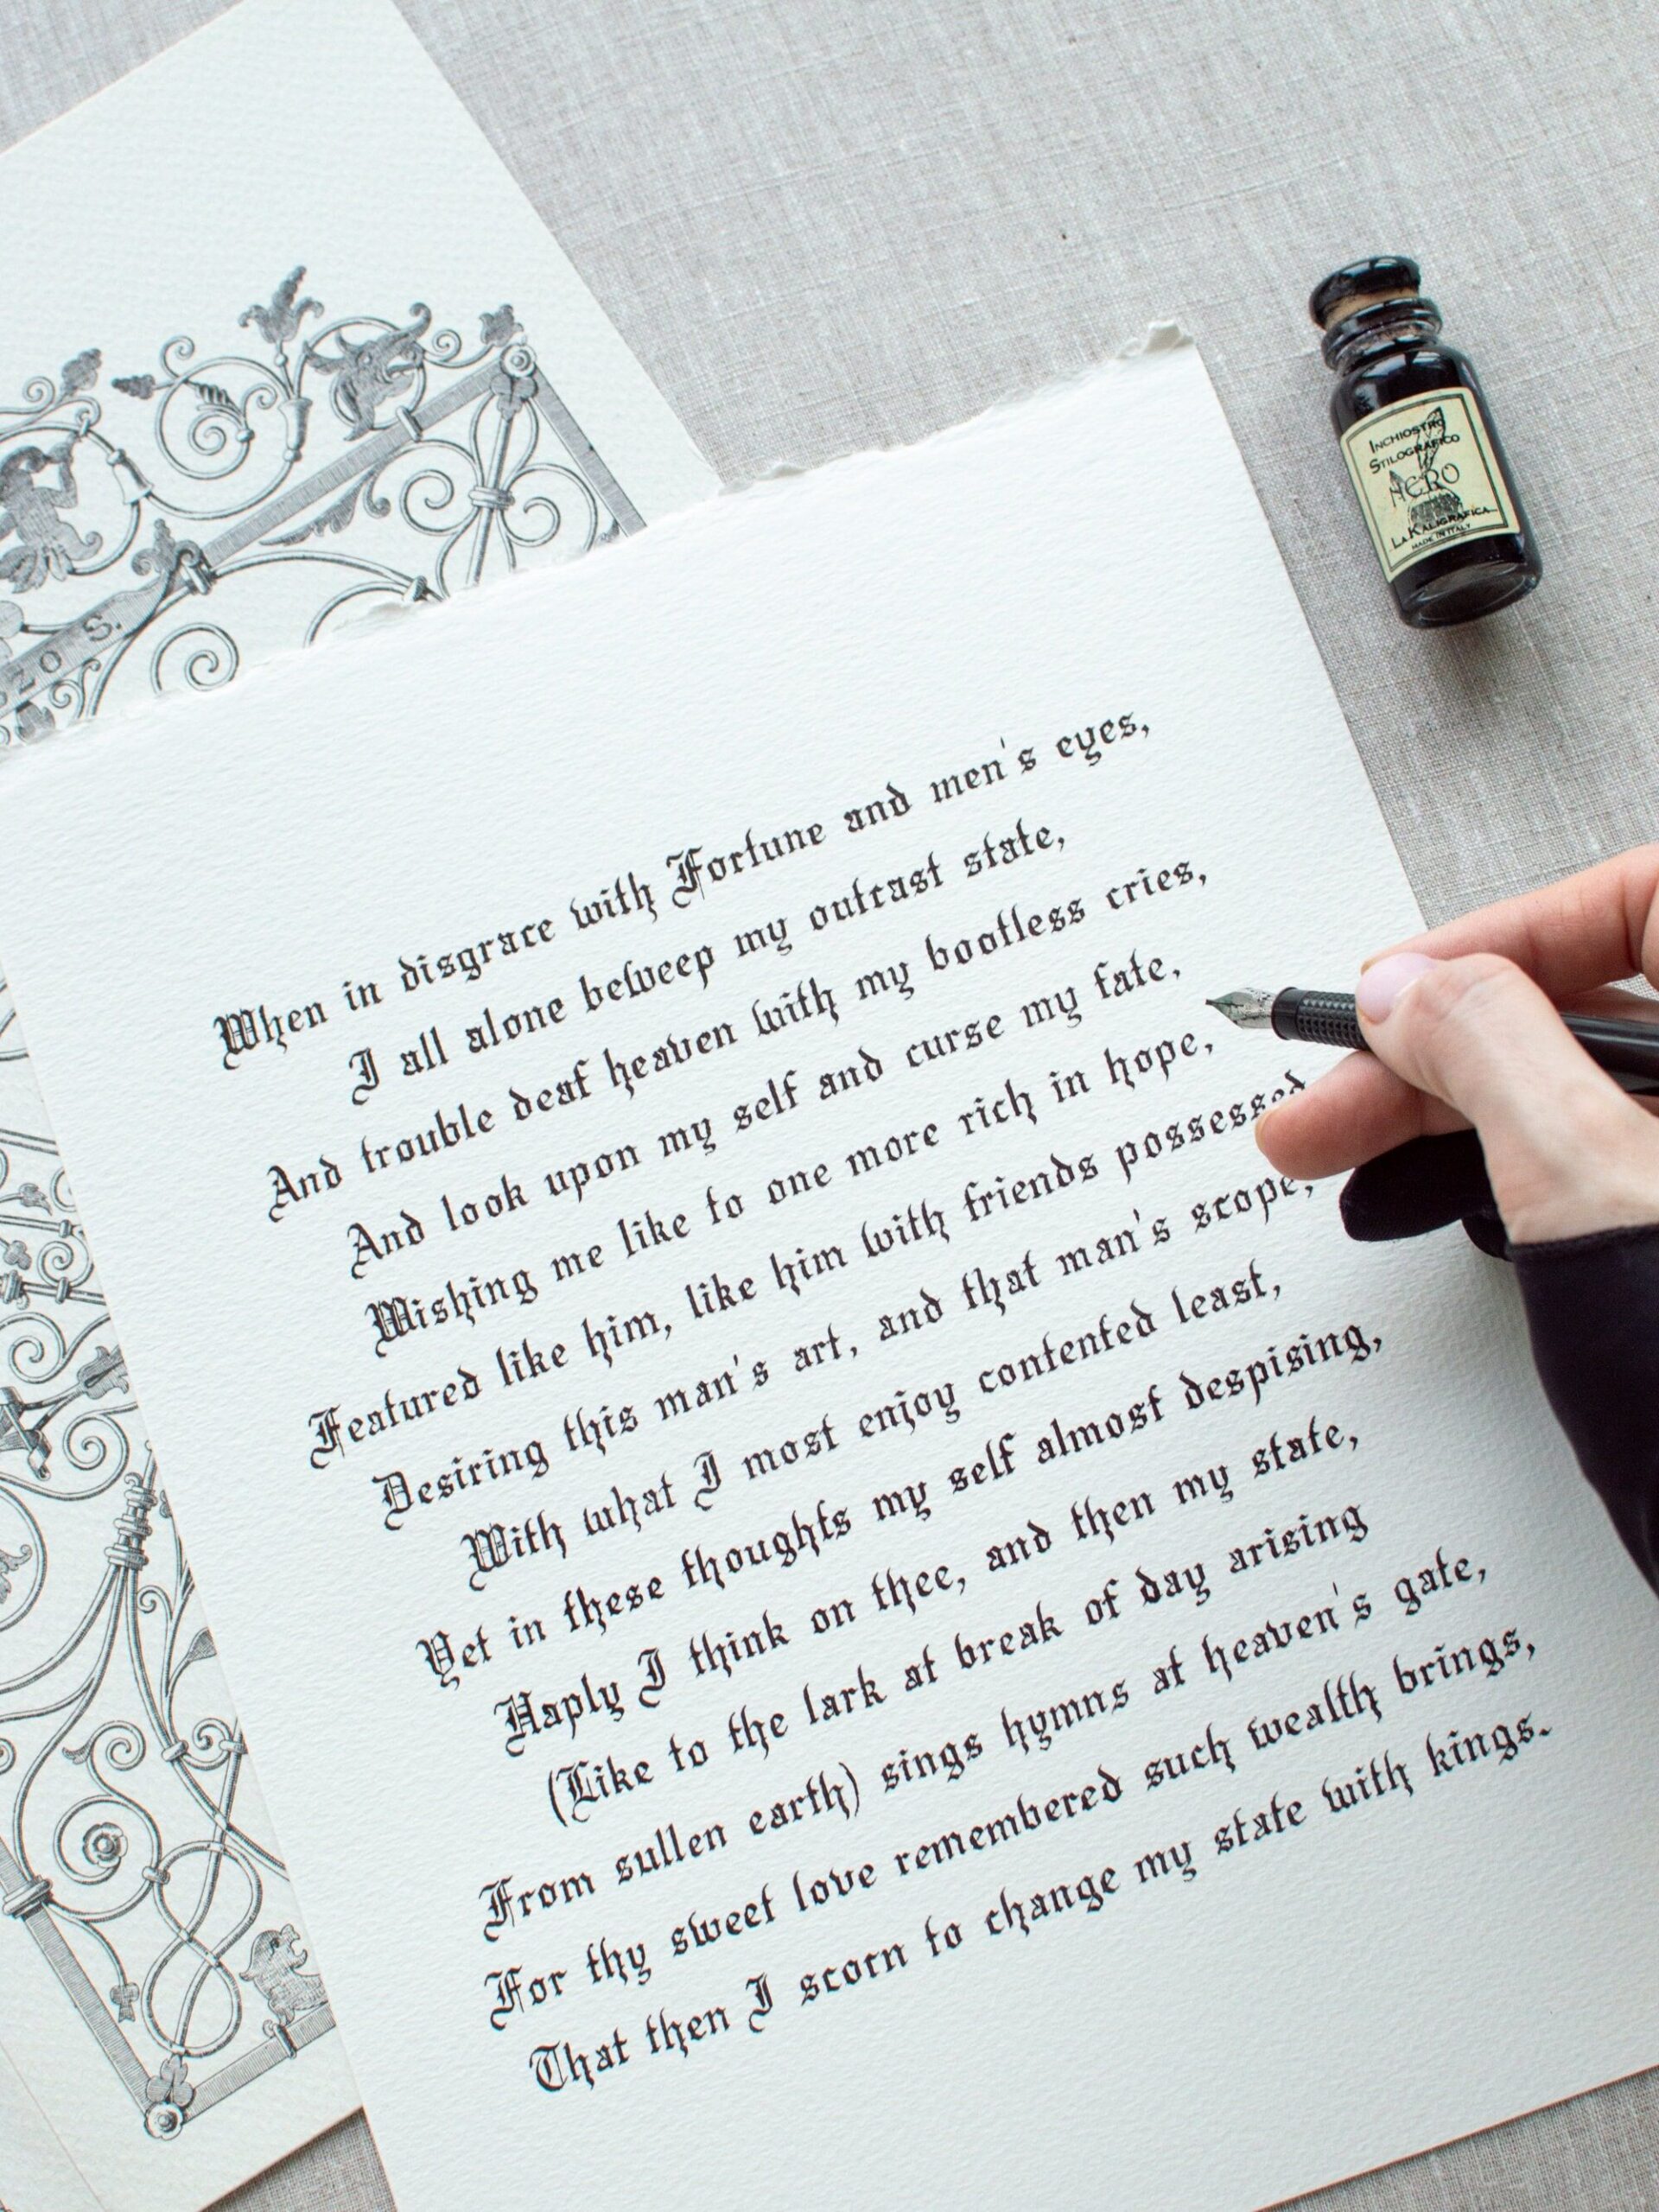 ZO S.
INCHIOSTRO
STILOGRAFICO
NERO
LA KALIGRAFICA
MADE IN ITALY
When in disgrace with Fortune and men's eyes,
I all alone beweep my outcast state,
And trouble deaf heaven with my bootless cries,
And look upon my self and curse my fate,
Wishing me like to one more rich in hope,
Featured like him, like him with friends possessed
Desiring this man's art, and that man's scope,
With what I most enjoy contented least,
Yet in these thoughts my self almost despising,
Haply I think on thee, and then my state,
(Like to the lark at break of day arising
From sullen earth) sings hymns at heaven's gate,
For thy sweet love remembered such wealth brings,
That then I scorn to change my state with kings.